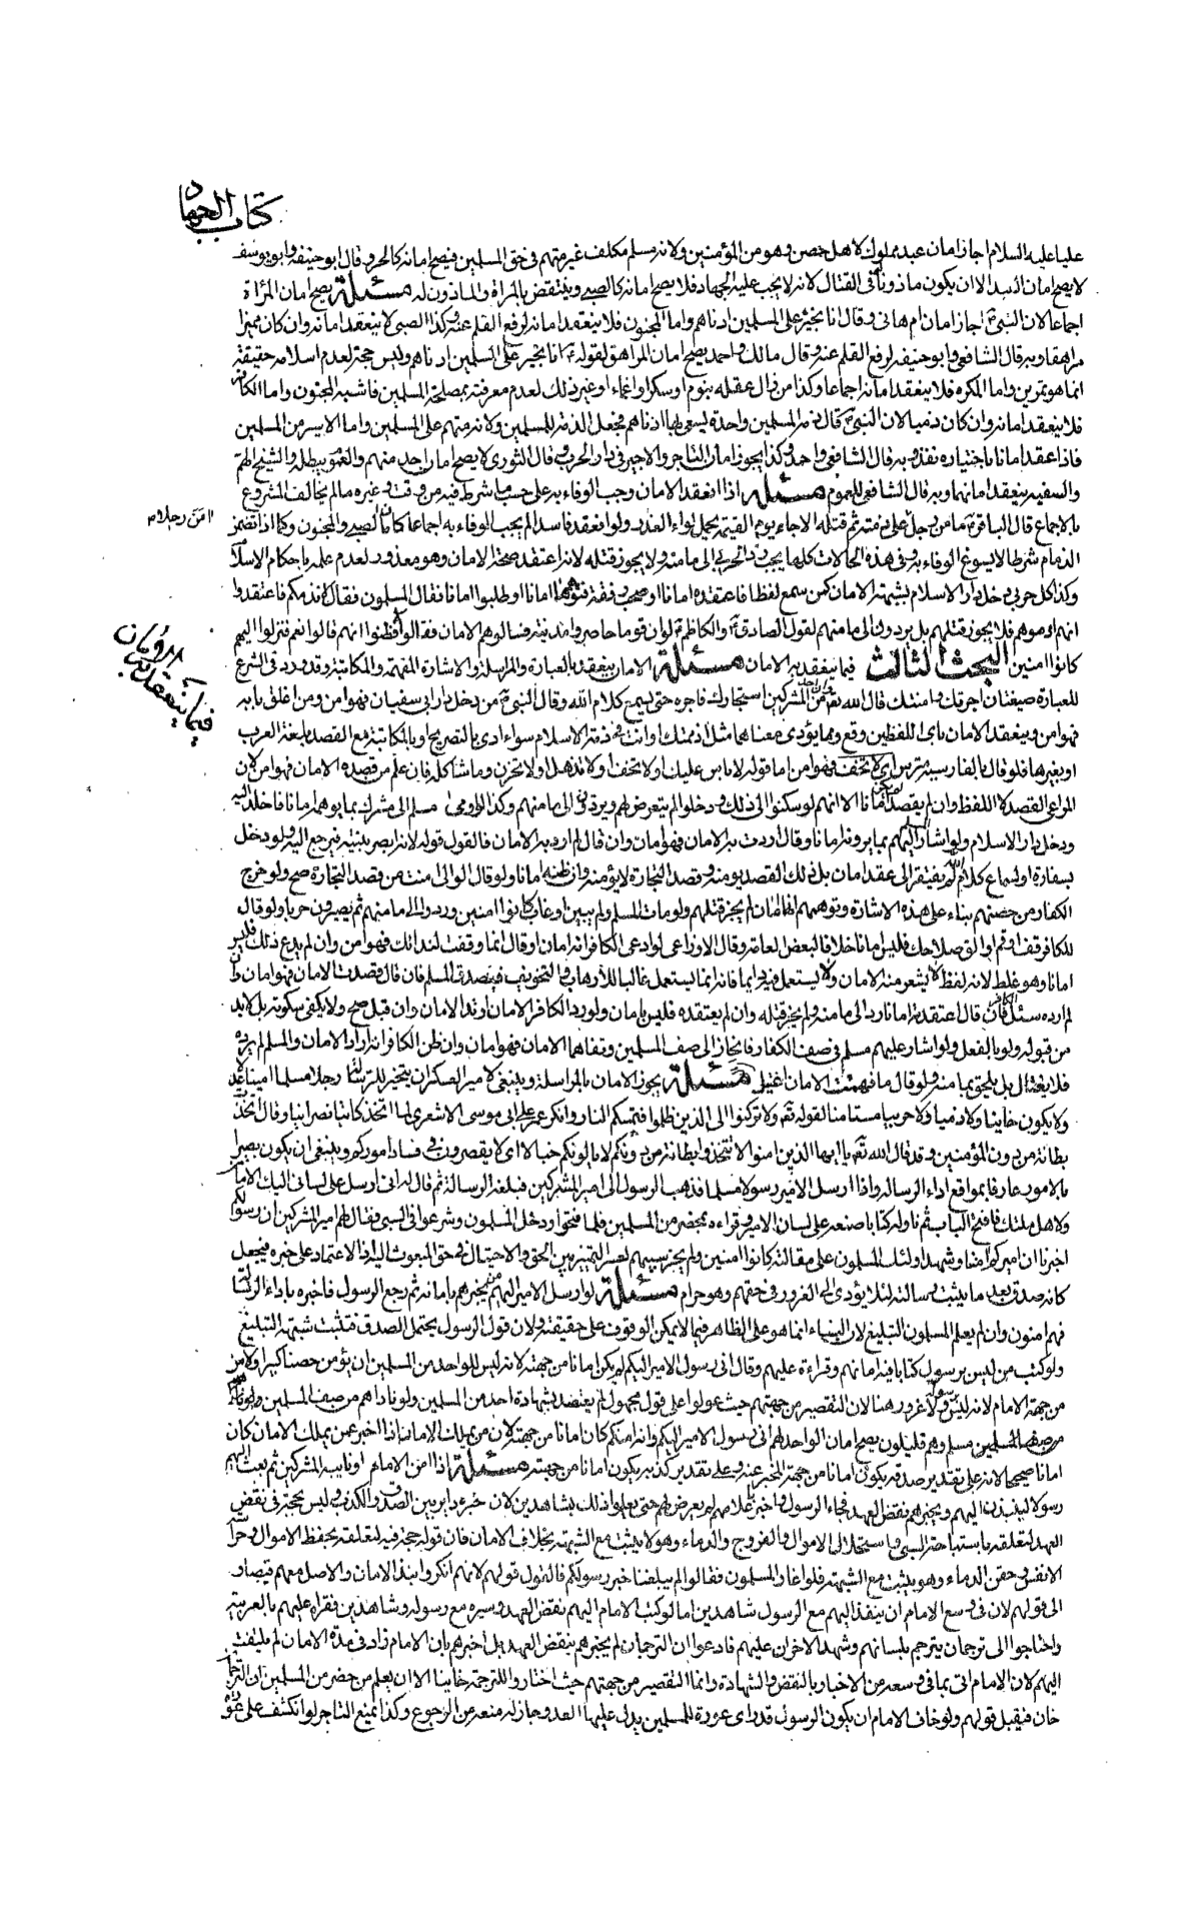 كتاب الجهاد
عليا عليه السلام اجاز امان عبد مملوك لاهل حصن وهو من المؤمنين ولانه مسلم مكلف غير متهم في حق المسلمين فيصح امانه كالحر وقال ابو حنيفه وابو يوسف
لا يصح امان العبد الا ان يكون ماذونا في القتال لانه لا يجب عليه الجهاد فلا يصح امانه كالصبي وينتقض بالمراة والماذون له مسئلة يصح امان المرأة
اجماعا لان النبي ص اجاز امان ام هاني وقال انما يجير على المسلمين ادناهم واما المجنون فلا ينعقد امانه لرفع القلم عنه وكذا الصبي لا ينعقد امانه وان كان مميزا
مراهقا وبه قال الشافعي وابو حنيفه لرفع القلم عنه وقال مالك واحمد يصح امان المراهق لقوله ع انما يجير على المسلمين ادناهم وليس حجة لعدم اسلامه حقيقة
انما هو تمرين واما المكره فلا ينعقد امانه اجماعا وكذا من زال عقله بنوم او سكر او اغماء او غير ذلك لعدم معرفته بمصلحة المسلمين فاشبه المجنون واما الكافر
فلا ينعقد امانه وان كان ذميا لان النبي ص قال ذمة المسلمين واحدة يسعى بها ادناهم فجعل الذمة للمسلمين ولانه متهم على المسلمين واما الاسير من المسلمين
فاذا عقد امانا باختياره نفذ وبه قال الشافعي واحمد وكذا يجوز امان التاجر والاجير في دار الحرب وقال الثوري لا يصح امان احد منهم والعمومات يبطله والشيخ الهم
والسفيه ينعقد امانهما وبه قال الشافعي للعموم مسئلة اذا انعقد الامان وجب الوفاء به على حسب ما شرط فيه من وقت وغيره ما لم يخالف المشروع
بالاجماع قال الباقر ع ما من رجل على ذمته ثم قتله الا جاء يوم القيمة يحمل لواء الغدر ولو انعقد فاسدا لم يجب الوفاء به اجماعا كامان الصبي والمجنون وكما اذا تضمن
ا امن رجلا م
الذمام شرطا لا يسوغ الوفاء به وفي هذه الحالات كلها يجب رد الحربي الى مامنه ولا يجوز قتله لانه اعتقد صحة الامان وهو معذور لعدم علمه باحكام الاسلام
وكذا كل حربي دخل دار الاسلام بشبهة الامان كمن سمع لفظا فاعتقده امانا او صحب رفقة فتوهمها امانا او طلبوا امانا فقال المسلمون فقال لا نذمكم فاعتقدوا
انهم اذموهم فلا يجوز قتلهم بل يردون الى مامنهم لقول الصادق ع والكاظم ع لو ان قوما حاصروا مدينة فسالوهم الامان فقالوا لا فظنوا انهم قالوا نعم فنزلوا اليهم
كانوا امنين البحث الثالث فيما ينعقد به الامان مسئلة الامان ينعقد بالعبارة والمراسلة والاشارة المفهمة والمكاتبة وقد ورد في الشرع
فيما ينعقد به الامان
للعبارة صيغتان اجرتك وامنتك قال الله تع وان احد من المشركين استجارك فاجره حتى يسمع كلام الله وقال النبي ص من دخل دار ابي سفيان فهو امن ومن اغلق بابه
فهو امن وينعقد الامان باي اللفظين وقع وبما يؤدي معناهما مثل اذممتك او انت في ذمة الاسلام سواء ادى بالتصريح او بالمكاتبة مع القصد بلغة العرب
او بغيرها فلو قال بالفارسية مترس اي لا تخف فهو امن اما قوله لا باس عليك او لا تخف او لا تذهل او لا تحزن وما شاكله فان علم من قصده الامان فهو امن لان
المراعى القصد لا اللفظ وان لم يقصد لم يكن امانا الا انهم لو سكنوا الى ذلك ودخلوا لم يتعرض لهم ويردون الى مامنهم وكذا لو اومى مسلم الى مشرك بما يوهم امانا فاخلد اليه
ودخل دار الاسلام ولو اشار المسلم اليهم بما يرونه امانا وقال اردت به الامان فهو امان وان قال لم ارد به الامان فالقول قوله لانه ابصر بنيته فيرجع اليه ولو دخل
بسفارة او لسماع كلام الله لم يفتقر الى عقد امان بل ذلك القصد يؤمنه وقصد التجارة لا يؤمنه وان ظنه امانا ولو قال الوالي امنت من قصد التجارة صح ولو خرج
الكفار من حصنهم بناء على هذه الاشارة وتوهمهم انها امان لم يجز قتلهم ولو مات المسلم ولم يبين او غاب كانوا امنين وردوا الى مامنهم ثم يصيرون حربا ولو قال
للكافر قف او قم او الق سلاحك فليس امانا خلافا لبعض العامة وقال الاوزاعي لو ادعى الكافر انه امان او قال انما وقفت لندائك فهو امن وان لم يدع ذلك فليس
امانا وهو غلط لانه لفظ لا يشعر منه الامان ولا يستعمل فيه دائما فانه انما يستعمل غالبا للارهاب والتخويف فيصدق المسلم فان قال قصدت الامان فهو امان وان
لم ارده سئل الكافر فان قال اعتقدته امانا رد الى مامنه ولم يجز قتله وان لم يعتقده فليس بامان ولو رد الكافر الامان ارتد الامان وان قبل صح ولا يكفي سكوته بل لابد
من قبوله ولو بالفعل ولو اشار عليهم مسلم في صف الكفار فانحاز الى صف المسلمين وتفاهما الامان فهو امان وان ظن الكافر انه اراد الامان والمسلم لم يرده
فلا يغتال بل يلحق بمامنه ولو قال ما فهمت الامان اغتيل مسئلة يجوز الامان بالمراسلة وينبغي لامير العسكر ان يتخير للرسالة رجلا مسلما امينا عدلا
ولا يكون خاينا ولا ذميا ولا حربيا مستامنا لقوله تع ولا تركنوا الى الذين ظلموا فتمسكم النار وانكر عمر على ابي موسى الاشعري لما اتخذ كاتبا نصرانيا وقال اتخذت
بطانة من دون المؤمنين وقد قال الله تع يا ايها الذين امنوا لا تتخذوا بطانة من دونكم لا يالونكم خبالا اي لا يقصرون في فساد اموركم وينبغي ان يكون بصيرا
بالامور عارفا بمواقع اداء الرسالة واذا ارسل الامير رسولا مسلما فذهب الرسول الى امير المشركين فبلغه الرسالة ثم قال له اني ارسل على لساني اليك الامان
ولاهل ملكك فافتح الباب ثم ناوله كتابا صنعه على لسان الامير وقراءه بمحضر من المسلمين فلما فتحوا ودخل المسلمون وشرعوا في السبي وقال لهم امير المشركين ان رسولكم
اخبرنا ان اميركم امننا وشهد اولئك المسلمون على مقالته كانوا امنين ولم يجز سبيهم لعسر التمييز بين الحق والاحتيال في حق المبعوث اليه اذ الاعتماد على خبره فيجعل
كانه صدق بعد ما يثبت رسالته لئلا يؤدى الى الغرور في حقهم وهو حرام مسئلة لو ارسل الامير اليهم من يخبرهم بامانه ثم رجع الرسول فاخبره باداء الرسالة
فهم امنون وان لم يعلم المسلمون التبليغ لان البناء انما هو على الظاهر فيما لا يمكن الوقوف على حقيقته ولان قول الرسول يحتمل الصدق فتثبت شبهة التبليغ
ولو كتب من ليس برسول كتابا فيه امانهم وقراءه عليهم وقال اني رسول الامير اليكم لم يكن امانا من جهته لانه ليس للواحد من المسلمين ان يؤمن حصنا كبيرا ولا من
من جهة الامام لانه ليس برسوله ولا غرور هنا لان التقصير من جهتهم حيث عولوا على قول مجهول لم يعتضد بشهادة احد من المسلمين ولو ناداهم من صف المسلمين
مسلم وهم قليلون يصح امان الواحد لهم اني رسول الامير اليكم وانه امنكم كان امانا من جهته لان من يملك الامان اذا اخبر عمن يملك الامان كان
امانا صحيحا لانه على تقدير صدقه يكون امانا من جهة المخبر عنه وعلى تقدير كذبه يكون امانا من جهته مسئلة اذا امن الامام او نايبه المشركين ثم بعث اليهم
رسولا لينبذ اليهم ويخبرهم نقض العهد فجاء الرسول واخبر باعلامهم لم يعرض لهم حتى يعلموا ذلك بشاهدين لان خبره داير بين الصدق والكذب وليس بحجة في نقض
العهد لتعلقه باستباحة السبي واستحلال الاموال والفروج والدماء وهو لا يثبت مع الشبهة بخلاف الامان فان قوله حجة فيه لتعلقه بحفظ الاموال وحراسة
الانفس وحقن الدماء وهو يثبت مع الشبهة فلو اغار المسلمون فقالوا لم يبلغنا خبر رسولكم فالقول قولهم لانهم انكروا نبذ الامان والاصل معهم فيصار
الى قولهم لان في وسع الامام ان ينفذ اليهم مع الرسول شاهدين اما لو كتب الامام اليهم نقض العهد وسيره مع رسوله وشاهدين فقراه عليهم بالعربية
واحتاجوا الى ترجمان يترجم بلسانهم وشهد الاخران عليهم فادعوا ان الترجمان لم يخبرهم بنقض العهد بل اخبرهم بان الامام زاد في مدة الامان لم يلتفت
اليهم لان الامام اتى بما في وسعه من الاخبار بالنقض والشهادة وانما التقصير من جهتهم حيث اختاروا للترجمة خاينا الا ان يعلم من حضر من المسلمين ان الترجمان
خان فيقبل قولهم ولو خاف الامام ان يكون الرسول قد راى عورة للمسلمين يدل عليها العدو جاز له منعه من الرجوع وكذا يمنع التاجر لو انكشف على عورة